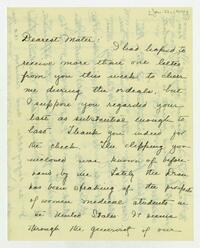 Dearest Mater:
I had hoped to
receive more than one letter
from you this week to cheer
me during the ordeals, but
I suppose you regarded your
last as substantial enough to
last. Thank you indeed for
the check. The clipping you
inclosed was known of before
hand by me. Lately the Dean
has been speaking of the prospects
of women medical students in
the United States. It seems
through the generosity of our